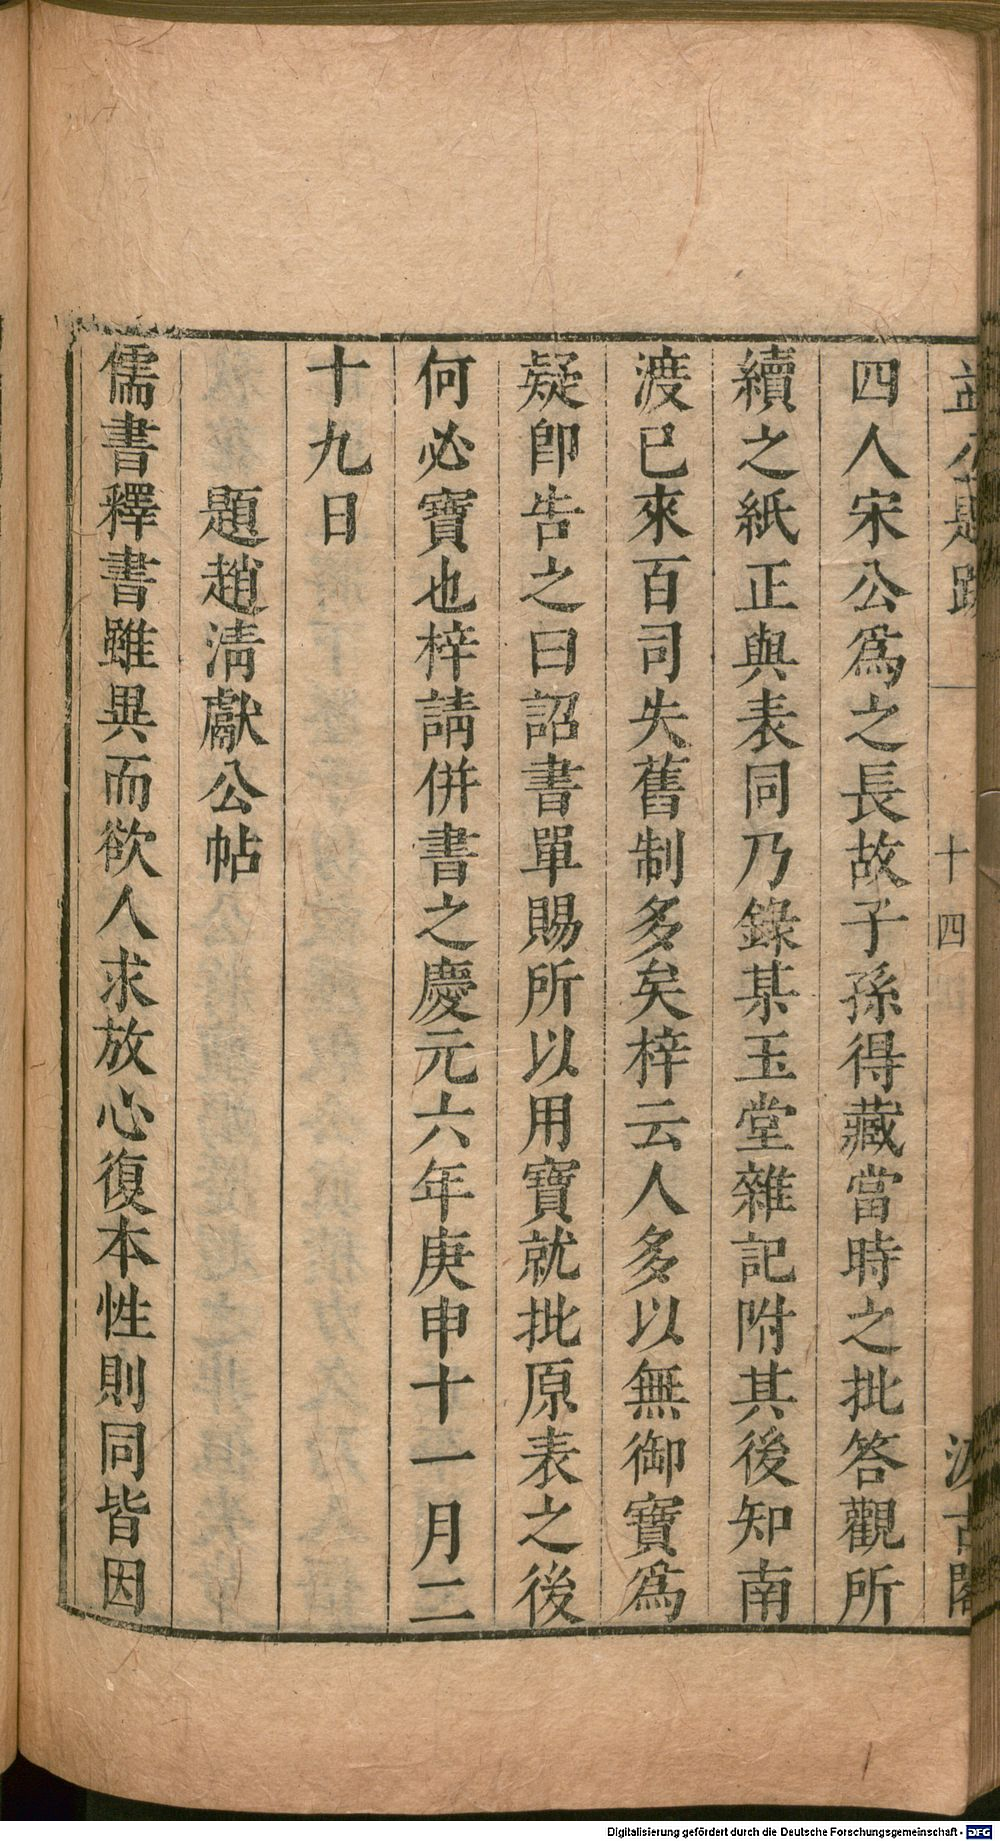 益公題跋 十四 汲古閣
四人宋公爲之長故子孫得藏當時之批答觀所
續之紙正與表同乃錄某玉堂雜記附其後知南
渡已來百司失舊制多矣梓云人多以無御寶爲
疑卽告之曰詔書單賜所以用寶就批原表之後
何必寶也梓請併書之慶元六年庚申十一月二
十九日
題趙淸獻公帖
儒書釋書雖異而欲人求放心復本性則同皆因
Digitalisierung gefördert durch die Deutsche Forschungsgemeinschaft - DFG